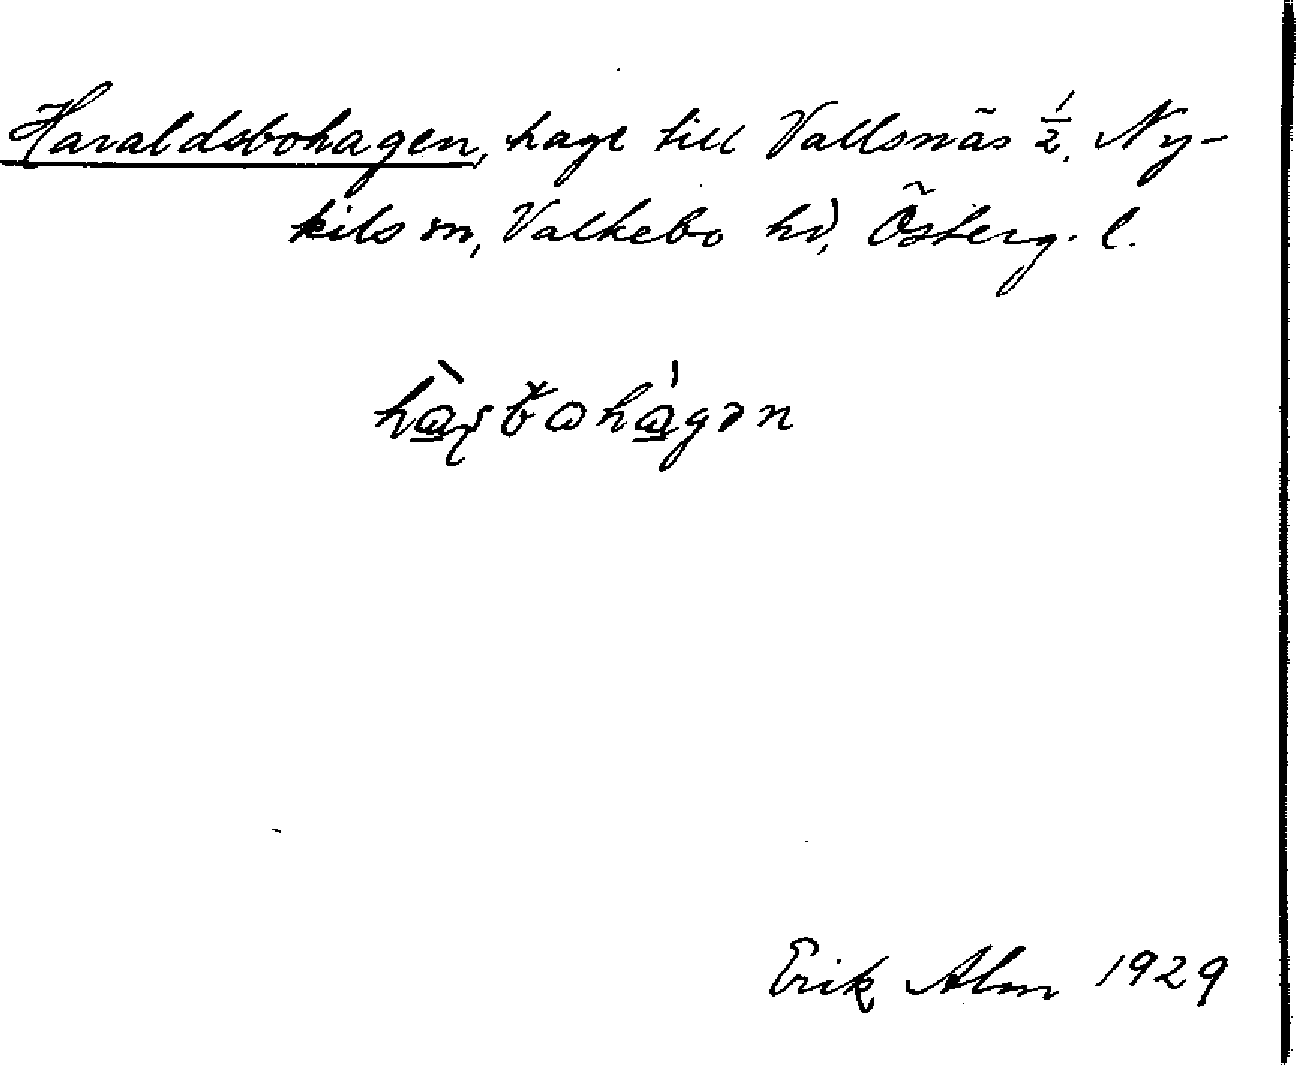 Haraldsbohagen, hage till Vallsnäs ½, Ny-
kils sn, Valkebo hd, Österg. l.
Erik Alm 1929